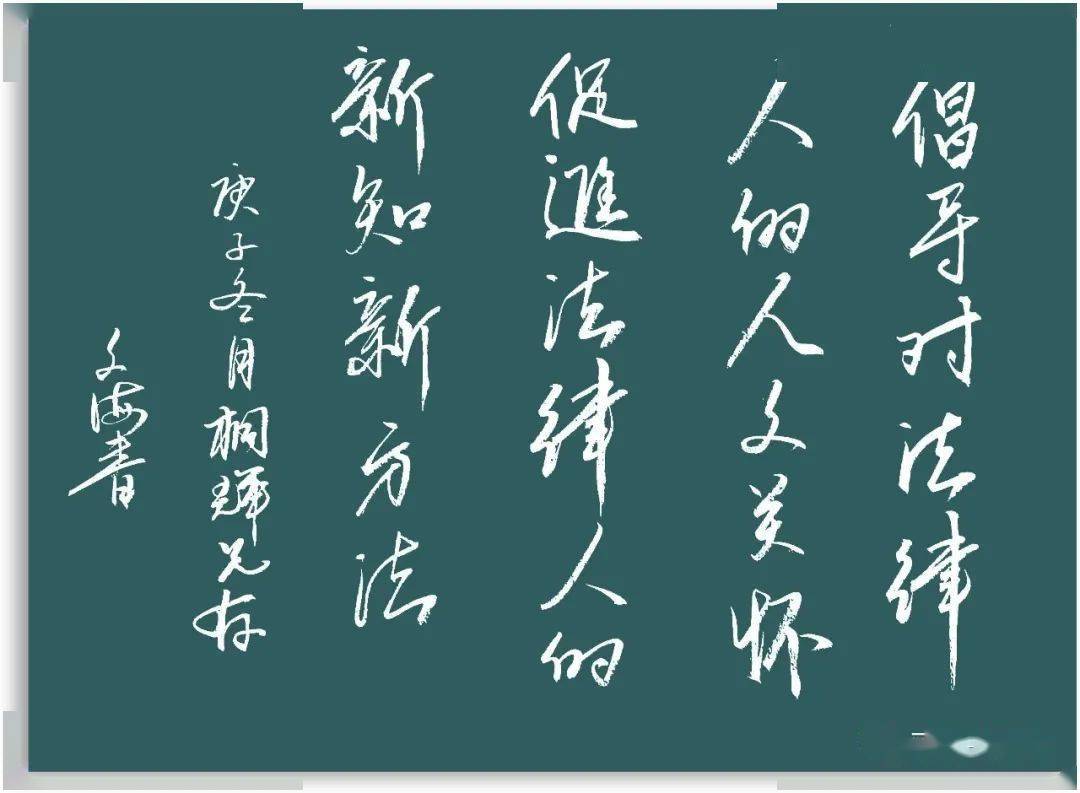 倡导对法律
人的人文关怀
促進法律人的
新知新新方法
庚子冬月桐琿兄存
文海書